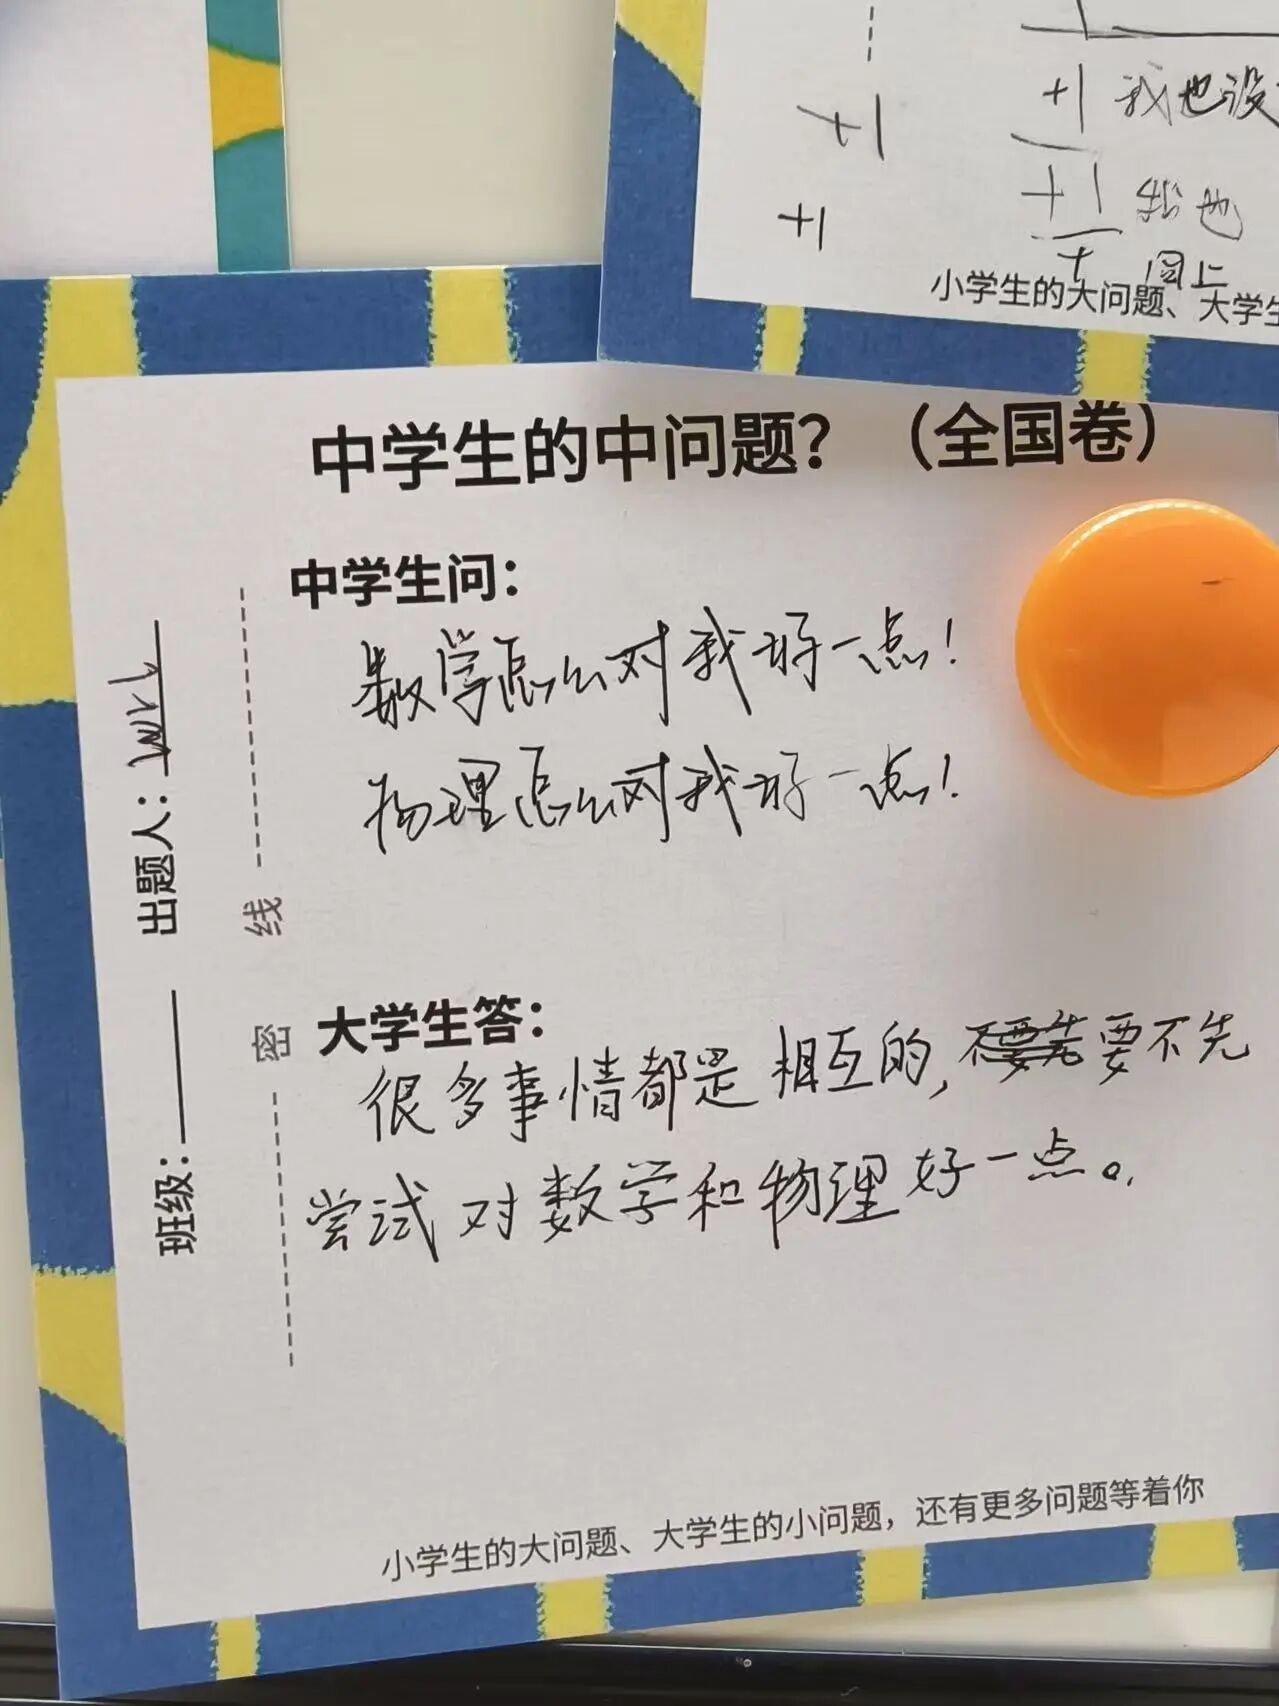 +1 我也没
+1
+1 我也
+1
同上
小学生的大问题、大学生
中学生的中问题？（全国卷）
中学生问：
数学怎么对我好一点！
物理怎么对我好一点！
出题人：
线
密
班级：
大学生答：
很多事情都是相互的，不要先要不先
尝试对数学和物理好一点。
小学生的大问题、大学生的小问题，还有更多问题等着你